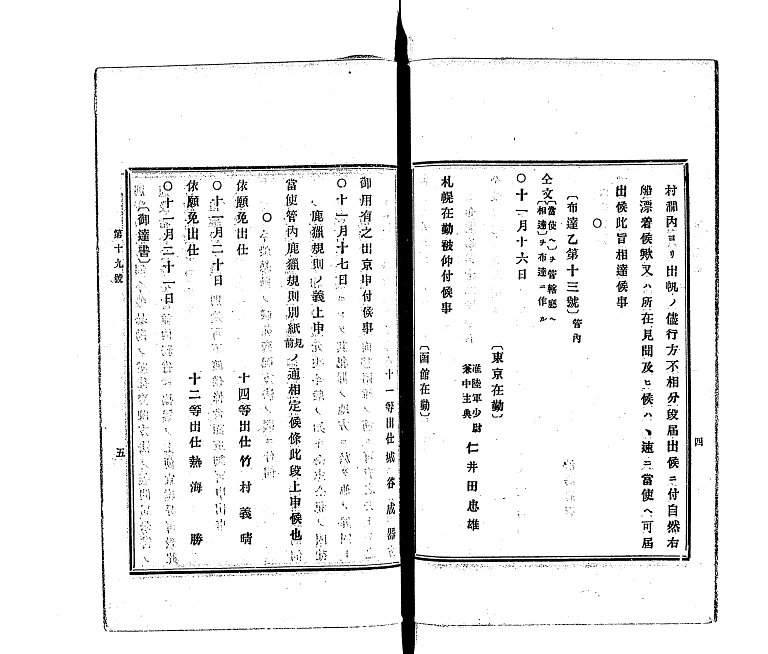 村澗內ヨリ出帆ノ儘行方不相分段屆出候ニ付自然右
船漂着候歟又ハ所在見聞及ヒ候ハヽ速ニ當使ヘ可屆
出候此旨相達候事
〇
〔布達乙第十三號〕管內
仝文〔當使ヘ〕ヲ管轄廳ヘ
〔相達〕ヲ布達ニ作ル
〇十一月十六日
〔東京在勤〕
准陸軍少尉
兼中主典
仁井田忠雄
札幌在勤被仰付候事
〔函館在勤〕
四
十一等出仕城谷成器
御用有之出京申付候事
〇十一月十七日
鹿獵規則ノ義上申
當使管內鹿獵規則別紙見前ノ通相定候條此段上申候也
〇
十四等出仕竹村義晴
依願免出仕
〇十一月二十日
十二等出仕熱海勝
依願免出仕
〇十一月二十一日
〔御達書〕
第十九號
五